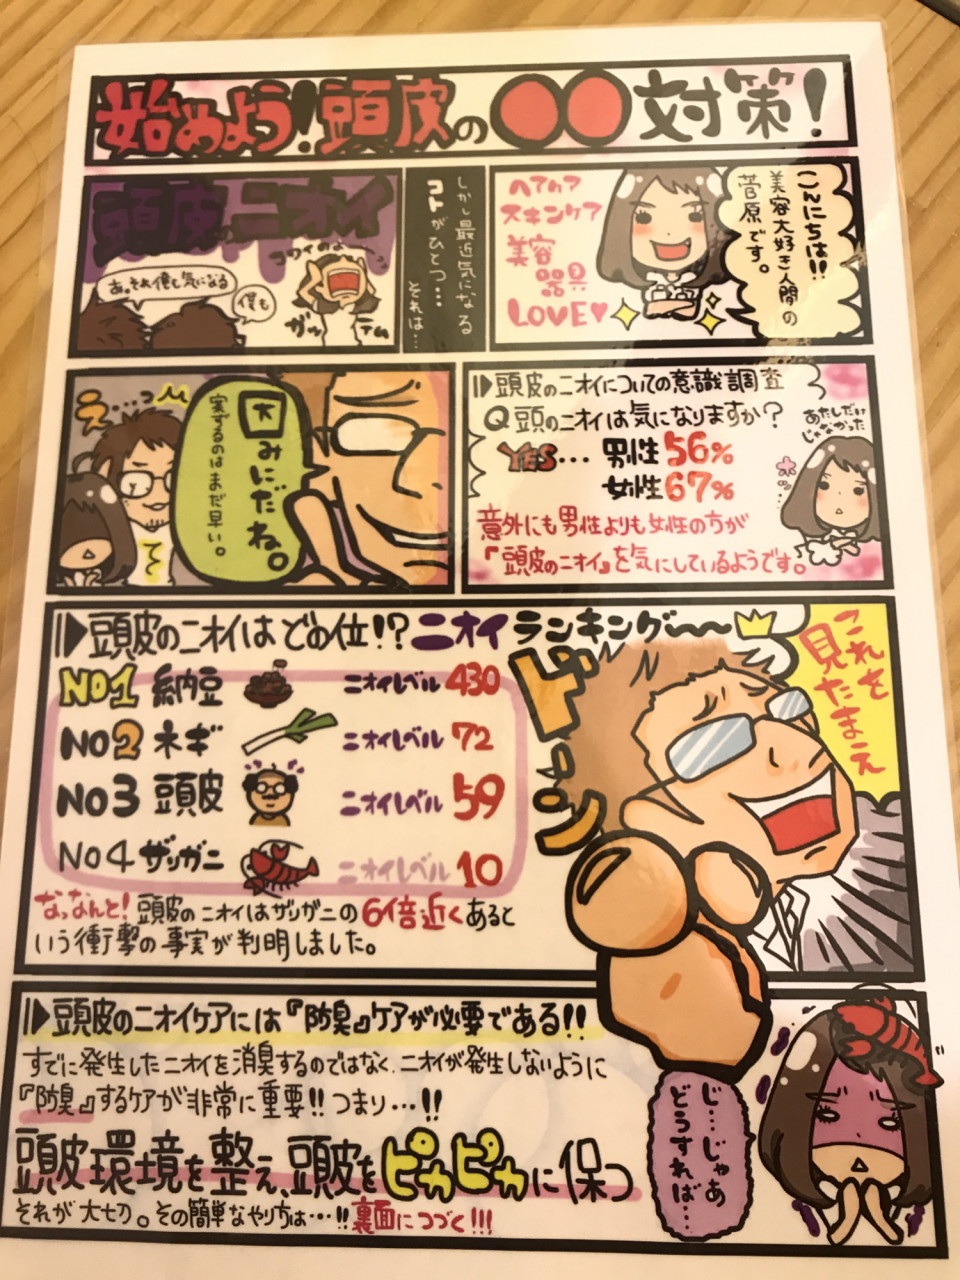 始めよう!頭皮の●●対策!
こんにちは!!
美容大好き人間の
菅原です。
ヘアケア
スキンケア
美容
器具
LOVE♥
しかし最近気になる
コトがひとつ…
それは…
頭皮のニオイ
コワイのよ〜
あ、それ僕も気になる
僕も
ガッ
テム
▶頭皮のニオイについての意識調査
Q頭のニオイは気になりますか?
YES…男性56%
女性67%
意外にも男性よりも女性の方が
『頭皮のニオイ』を気にしているようです。
あたしだけ
じゃなかった
ホッ…
困みにだね。
実ずるのはまだ早い。
え…っ
て
▶頭皮のニオイはどの位!?ニオイランキング〜〜
NO1 納豆 ニオイレベル 430
NO2 ネギ ニオイレベル 72
NO3 頭皮 ニオイレベル 59
NO4 ザリガニ ニオイレベル 10
なっなんと!頭皮のニオイはザリガニの6倍近くあると
いう衝撃の事実が判明しました。
ドーン
これを
見たまえ
▶頭皮のニオイケアには『防臭』ケアが必要である!!
すでに発生したニオイを消臭するのではなく、ニオイが発生しないように
『防臭』するケアが非常に重要!!つまり…!!
頭皮環境を整え、頭皮をピカピカに保つ
それが大切。その簡単なやり方は…!!裏面につづく!!!
じ…じゃあ
どうすれば…